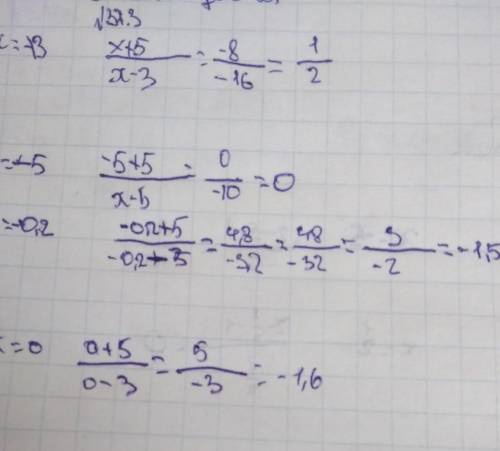 √37.3
x=-13 x+5/x-3 = -8/-16 = 1/2
=-5 -5+5/x-5 = 0/-10 = 0
=-0,2 -0,2+5/-0,2-3 = 4,8/-3,2 = 48/-32 = 3/-2 = -1,5
x=0 0+5/0-3 = 5/-3 = -1,6